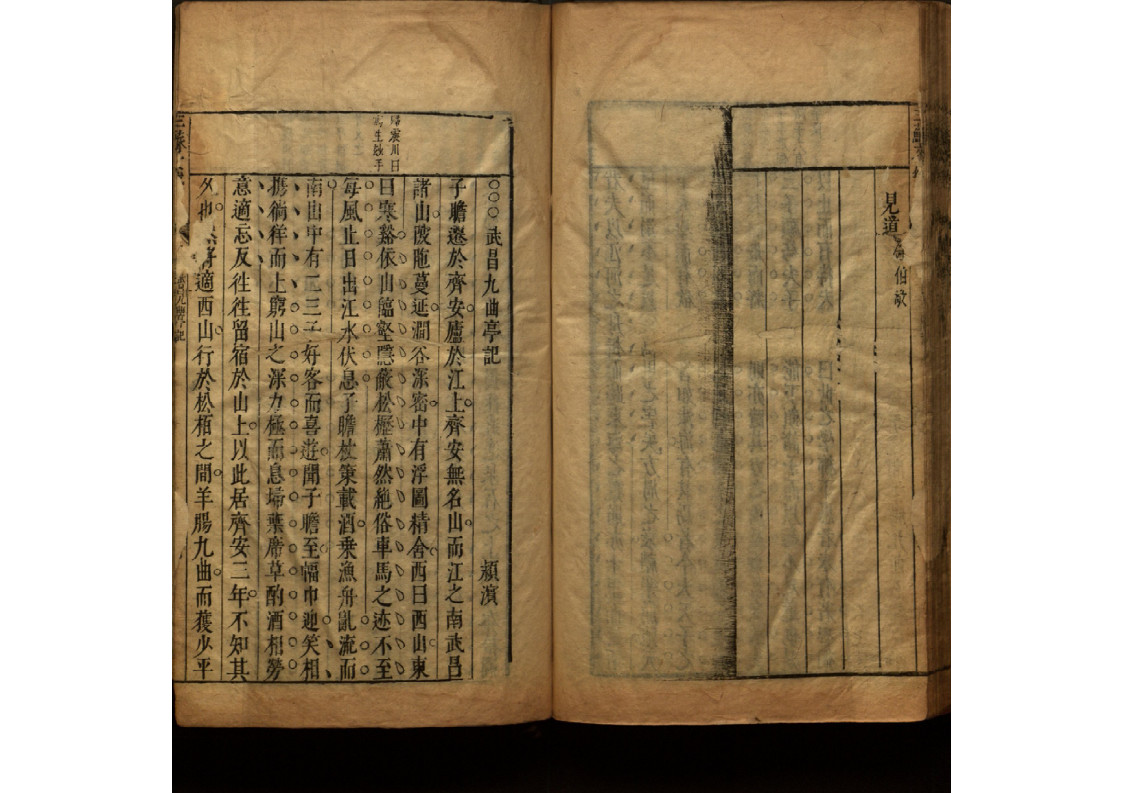 見道
伯敬
震川曰
生妙手
○○○武昌九曲亭記 潁濱
子瞻遷於齊安廬於江上齊安無名山而江之南武昌
諸山陂陁蔓延澗谷深密中有浮圖精舍西曰西山東
曰寒谿依山臨壑隱蔽松櫪蕭然絶俗車馬之迹不至
每風止日出江水伏息子瞻杖策載酒乗漁舟亂流而
南山中有二三子好客而喜遊聞子瞻至幅巾迎笑相
携徜徉而上窮山之深力極而息埽葉席草酌酒相勞
意適忘反往往留宿於山上以此居齊安三年不知其
久也將適西山行於松栢之間羊腸九曲而獲少平
三蘇